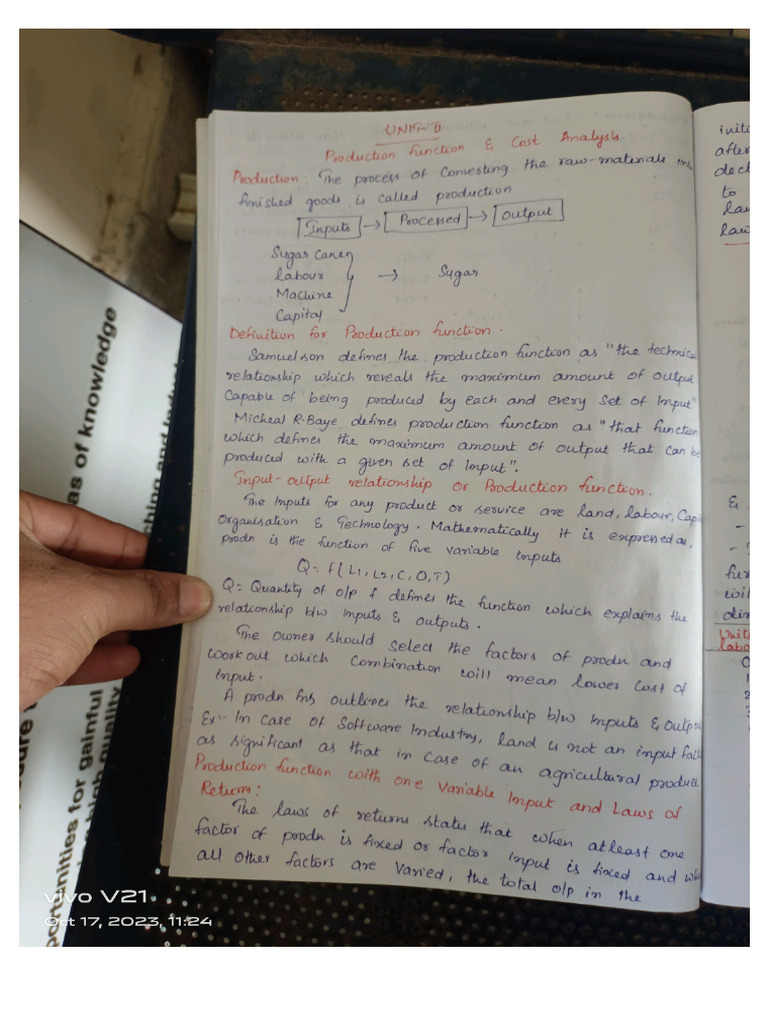 UNIT-II
Production Function & Cost Analysis
Production: The process of Converting the raw-materials into
finished goods is called production
Inputs → Processed → Output
Sugar Cane
Labour
Machine
Capital
→ Sugar
Definition for Production function.
Samuelson defines the production function as "the technical
relationship which reveals the maximum amount of output
Capable of being produced by each and every set of Input"
Micheal R-Baye defines production function as "that function
which defines the maximum amount of output that can be
produced with a given set of Input".
Input-output relationship or Production function.
The Inputs for any product or service are land, labour, Cap
Organisation & Technology. Mathematically it is expressed as,
prodn is the function of five variable inputs
Q = f(L1, L2, C, O, T)
Q = Quantity of o/p f defines the function which explains the
relationship b/w Inputs & outputs.
The owner should select the factors of prodn and
work out which Combination will mean lower cost of
Input.
A prodn fns outlines the relationship b/w Inputs & outputs
Ex:- In case of Software Industry, land is not an input fact
as significant as that in case of an agricultural product
Production function with one Variable Input and Laws of
Returns:
The laws of returns states that when atleast one
factor of prodn is fixed or factor input is fixed and wh
all other factors are varied, the total o/p in the
after
decl
to
law
law
&
fur
wil
dir
Unit
labo
0
1
2
3
as of knowledge
ching and
opportunities for gainful
high quality
vivo V21
Oct 17, 2023, 11:24